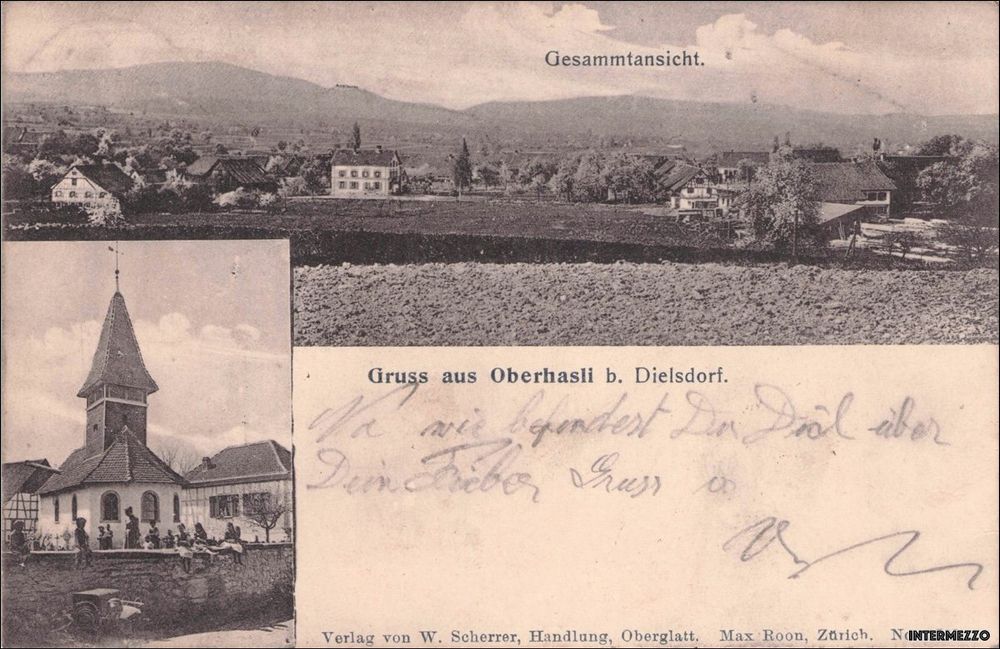 Gesammtansicht.
Gruss aus Oberhasli b. Dielsdorf.
Na wie befindest Du Dich über
Dein Fieber Gruss
Verlag von W. Scherrer, Handlung, Oberglatt. Max Roon, Zürich. No
INTERMEZZO